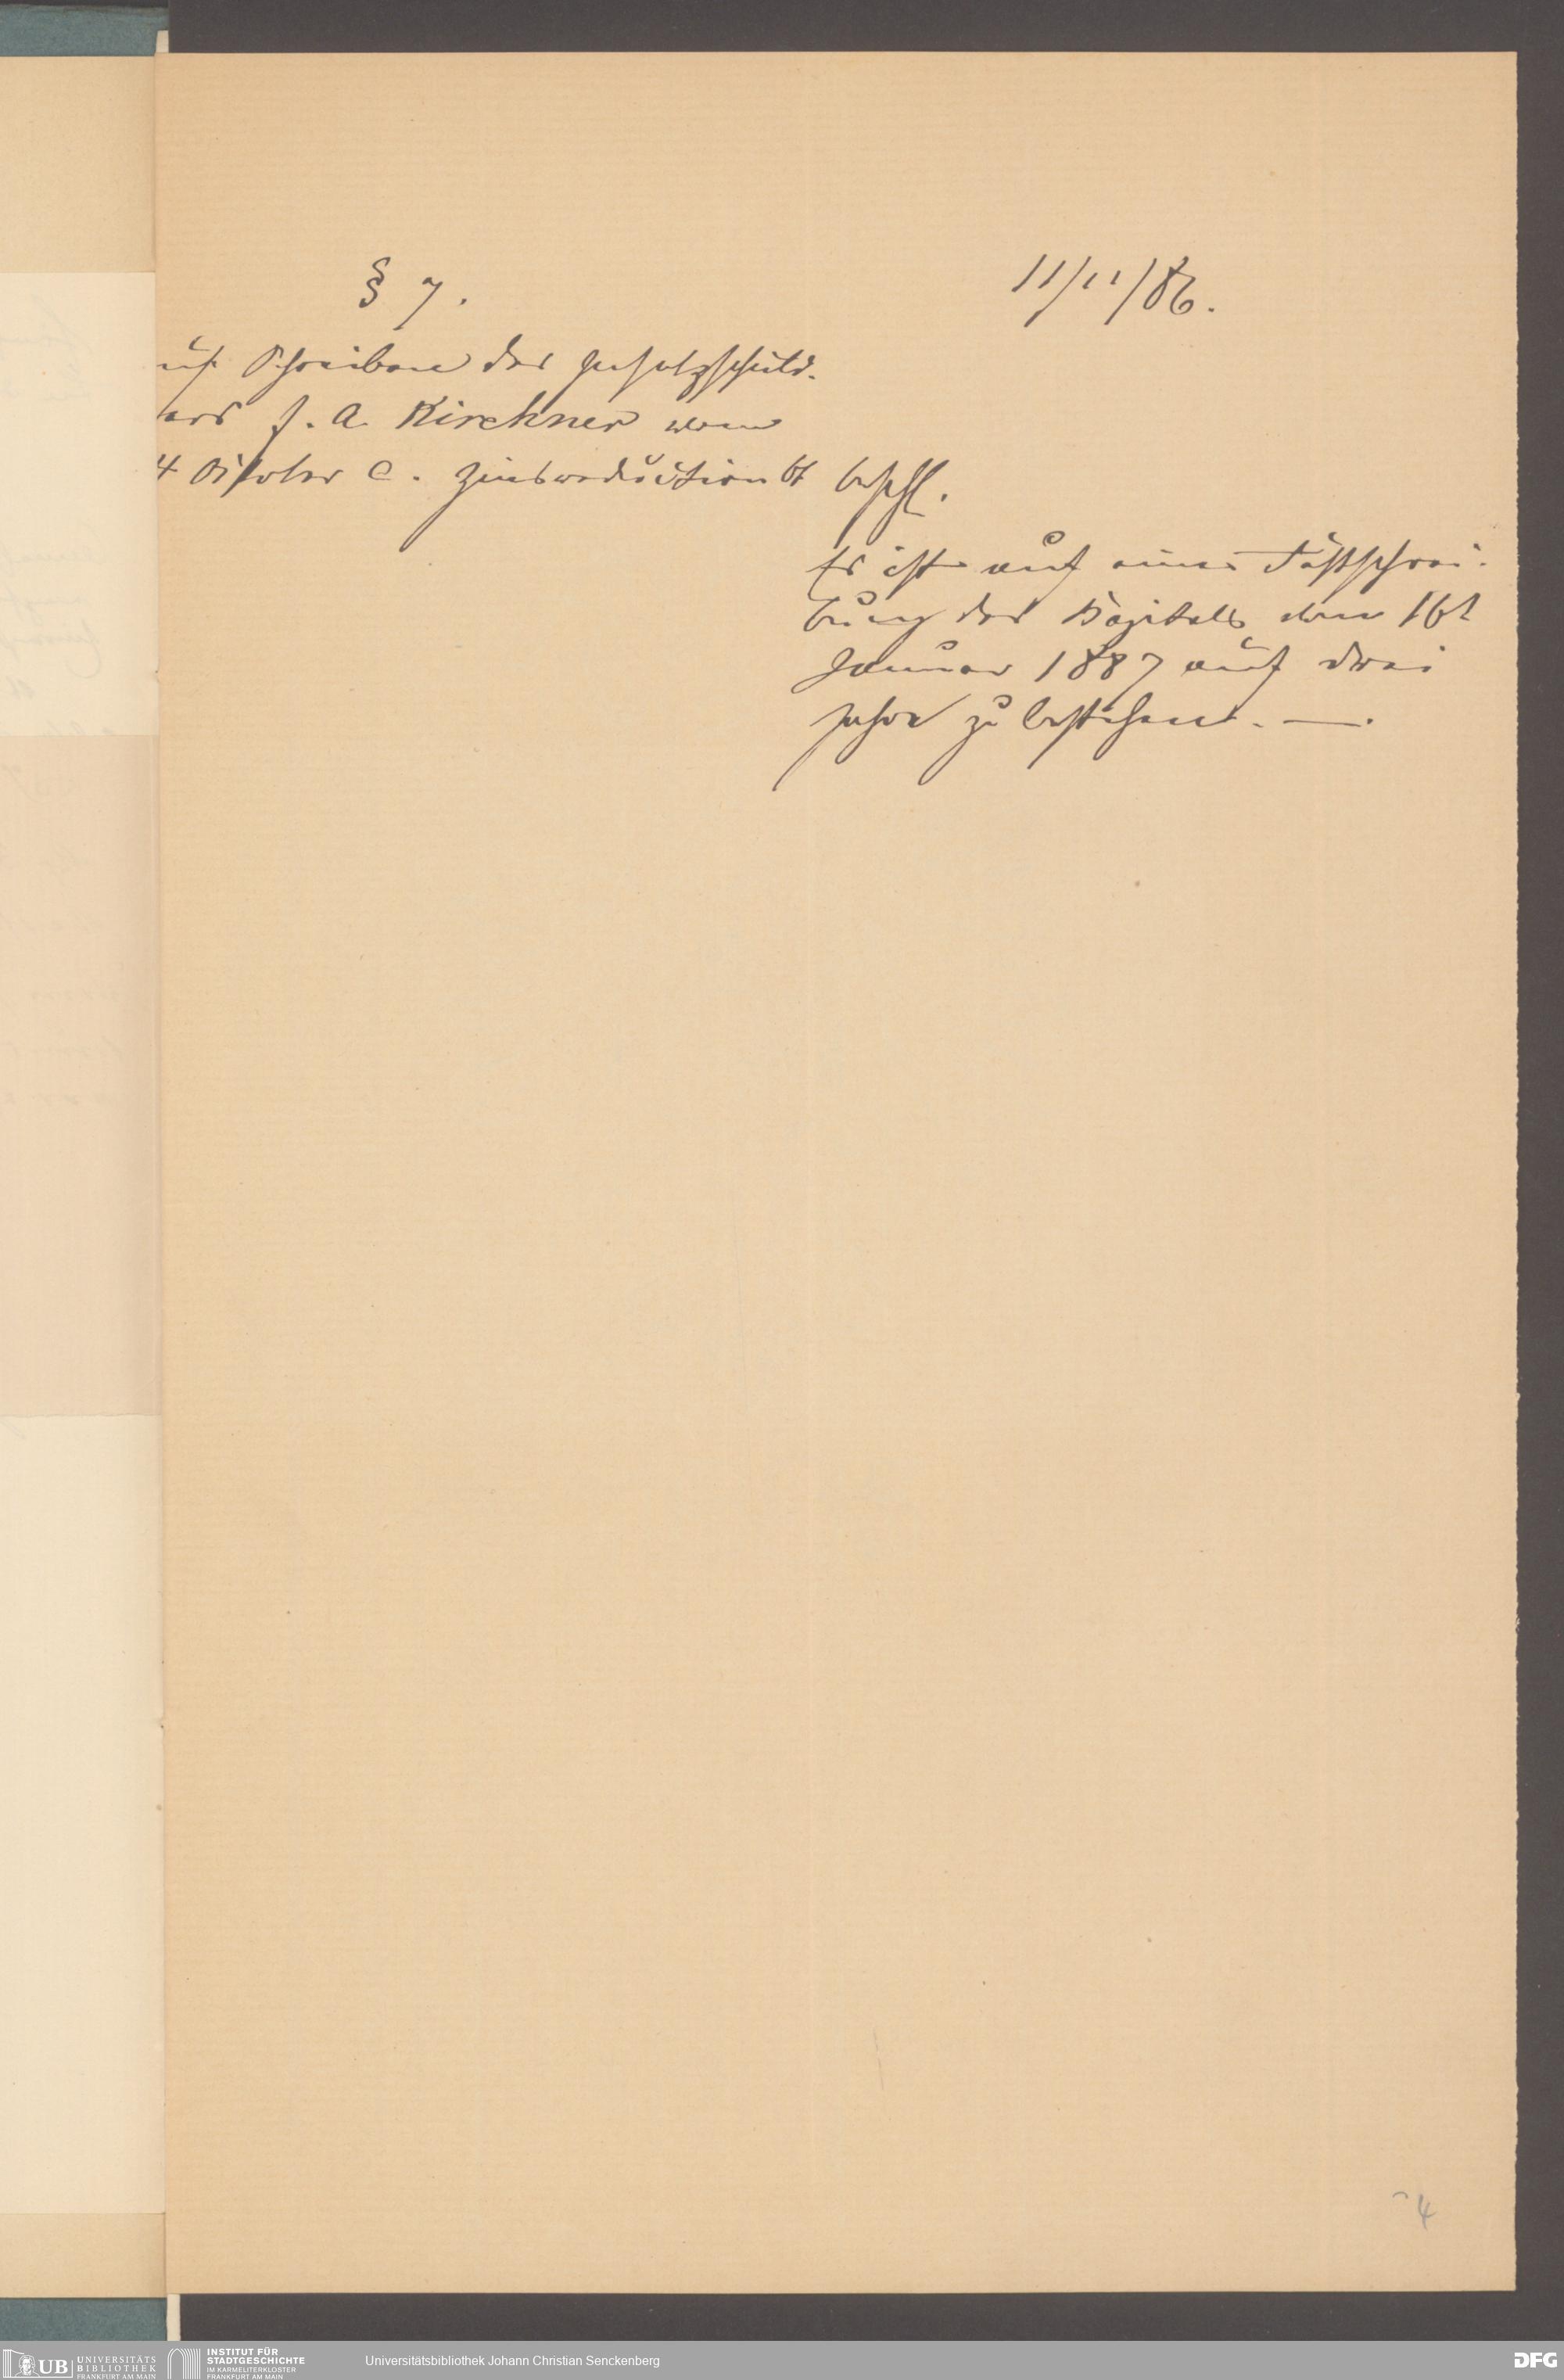 § 7.
11/11/86.
auf Schreiben des Insatzschuld-
ners J. A. Kirchner vom
4 October c. Zinsreduction bt
beschl.
Es ist auf eine Festschrei-
bung des Kapitals vom 1st
Januar 1887 auf drei
Jahre zu bestehen. —.
4
UB UNIVERSITÄTS BIBLIOTHEK FRANKFURT AM MAIN
INSTITUT FÜR STADTGESCHICHTE IM KARMELITERKLOSTER FRANKFURT AM MAIN
Universitätsbibliothek Johann Christian Senckenberg
DFG